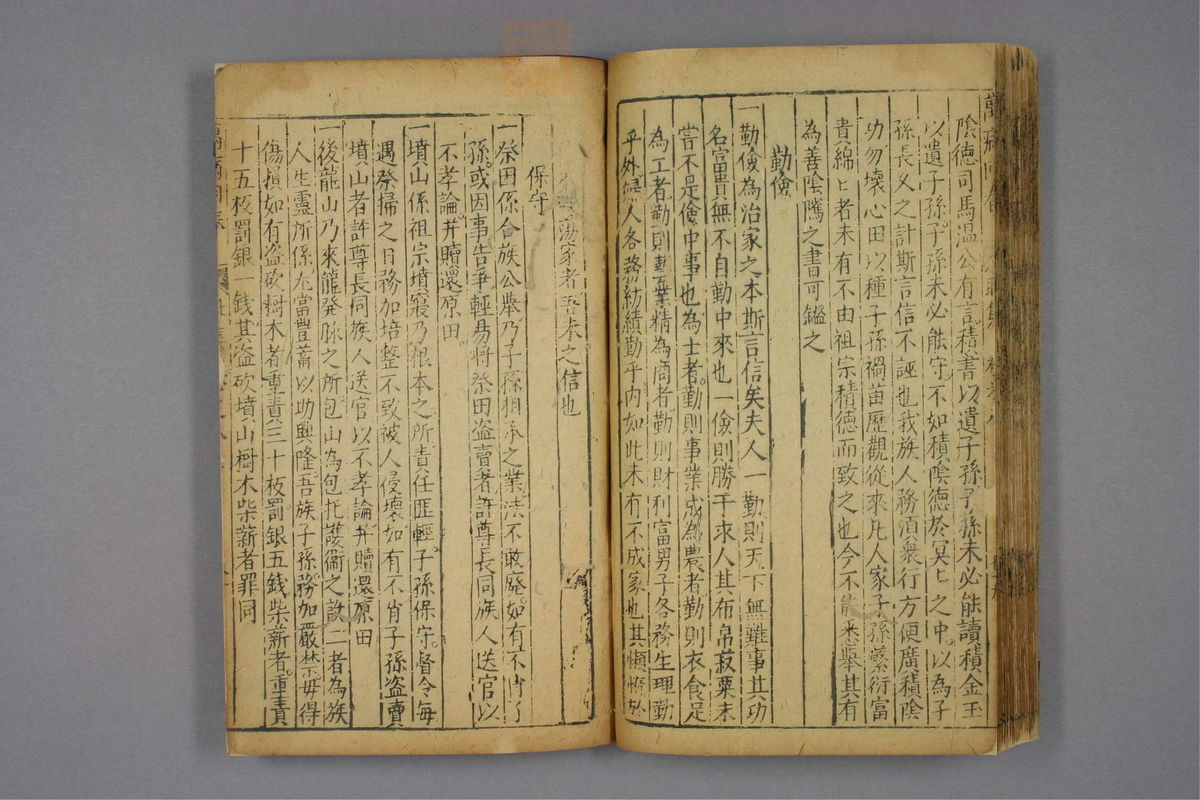 陰德司馬溫公有言積書以遺子孫子孫未必能讀積金玉
以遺子孫子孫未必能守不如積陰德於冥匕之中以為子
孫長乆之計斯言信不誣也我族人務湏衆行方便廣積陰
功勿壞心田以種子孫禍苗歷觀從來凢人家子孫蕃衍富
貴綿匕者未有不由祖宗積德而致之也今不能悉舉其有
為善陰隲之書可鑑之
勤儉
一勤儉為治家之本斯言信矣夫人一勤則天下無難事其功
名富貴無不自勤中來也一儉則勝于求人其布帛菽粟未
甞不是儉中事也為士者勤則事業成為農者勤則衣食足
為工者勤則藝業精為商者勤則財利富男子各務生理勤
乎外婦人各務紡績勤乎内如此未有不成家也其懶惰
蕩家者吾未之信也
保守
一祭田係合族公舉乃子孫相承之業法不敢廢如有不肖子
孫或因事告爭輕昜將祭田盗賣者許尊長同族人送官以
不孝論并贖還原田
一墳山係祖宗墳寢乃根本之所責任匪輕子孫保守督令每
遇祭掃之日務加培整不致被人侵壞如有不肖子孫盗賣
墳山者許尊長同族人送官以不孝論并贖還原田
一後龍山乃來龍發脉之所包山為包托護衞之設二者為族
人生靈所係尤當豊蓄以助興隆吾族子孫務加嚴禁毋得
傷損如有盗砍樹木者重責三十板罰銀五錢柴薪者重責
十五板罰銀 錢其盗砍墳山樹木柴薪者罪同